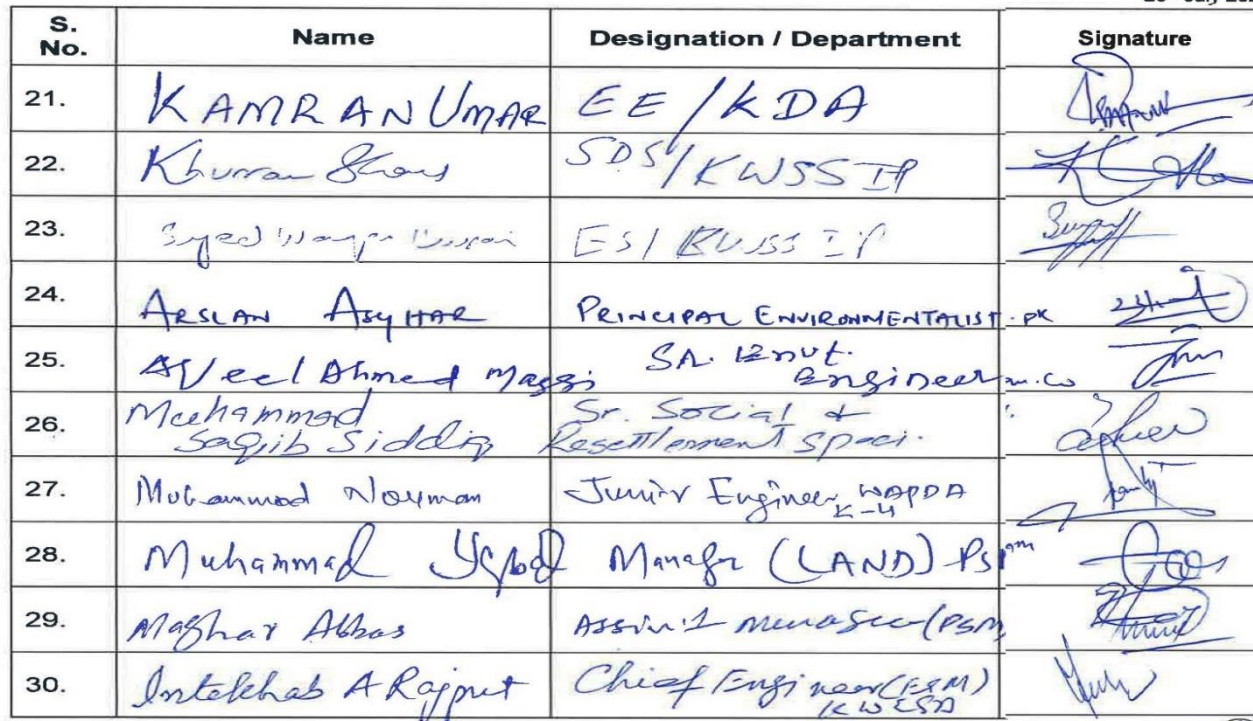 July 20
S. No. Name Designation / Department Signature
21. KAMRAN UMAR EE / KDA
22. Khurram SDS / KWSSIP
23. Syed ES / KWSSIP
24. ARSLAN ASGHAR PRINCIPAL ENVIRONMENTALIST
25. Ahmed SR. Envt. Engineer
26. Muhammad Saqib Siddiq Sr. Social & Resettlement Speci.
27. Muhammad Nouman Junior Engineer WAPDA K-4
28. Muhammad Iqbal Manager (LAND) PSM
29. Mazhar Abbas (PSM)
30. Intekhab A Rajput Chief Engineer (E&M)